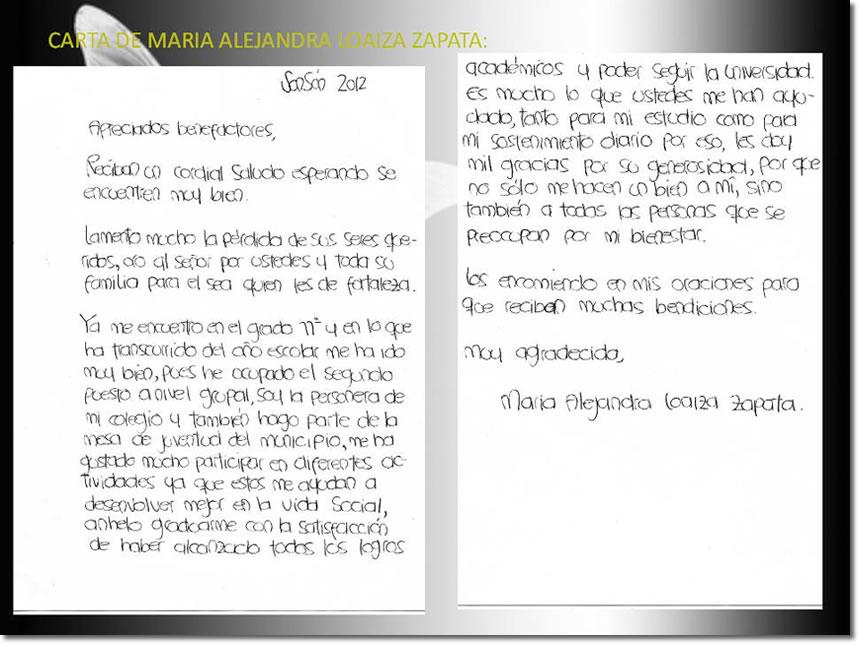 CARTA DE MARIA ALEJANDRA LOAIZA ZAPATA:
Sonsón 2012
Apreciados benefactores,
Reciban un cordial saludo esperando se
encuentren muy bien.
lamento mucho la pérdida de sus seres que-
ridos, oro al señor por ustedes y toda su
familia para el sea quien les de fortaleza.
Ya me encuentro en el grado 11º y en lo que
ha transcurrido del año escolar me ha ido
muy bien, pues he ocupado el segundo
puesto a nivel grupal, soy la personera de
mi colegio y también hago parte de la
mesa de juventud del municipio, me ha
gustado mucho participar en diferentes ac-
tividades ya que estos me ayudan a
desenvolver mejor en la vida social,
anhelo graduarme con la satisfacción
de haber alcanzado todos los logros
académicos y poder seguir la universidad.
Es mucho lo que ustedes me han ayu-
dado, tanto para mi estudio como para
mi sostenimiento diario por eso, les doy
mil gracias por su generosidad, por que
no sólo me hacen un bien a mí, sino
también a todas las personas que se
preocupan por mi bienestar.
los encomiendo en mis oraciones para
que reciban muchas bendiciones.
Muy agradecida,
Maria Alejandra loaiza zapata.